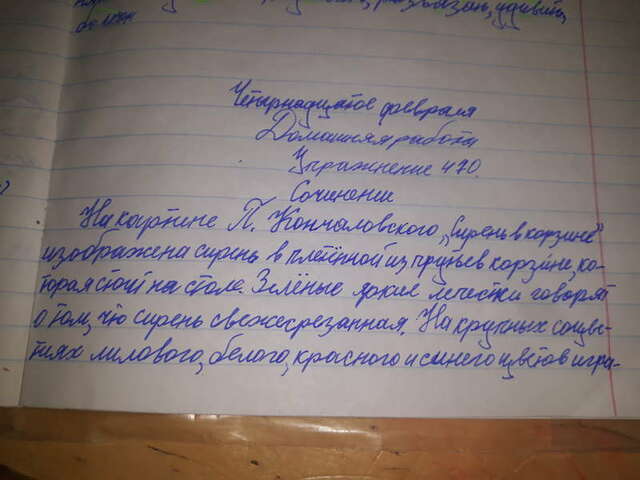 развязан, удивит,
Четырнадцатое февраля
Домашняя работа
Упражнение 470.
Сочинение
На картине П. Кончаловского „Сирень в корзине"
изображена сирень в плетённой из прутьев корзине, ко-
торая стоит на столе. Зелёные яркие лепестки говорят
о том, что сирень свежесрезанная. На крупных соцве-
тиях лилового, белого, красного и синего цветов игра-